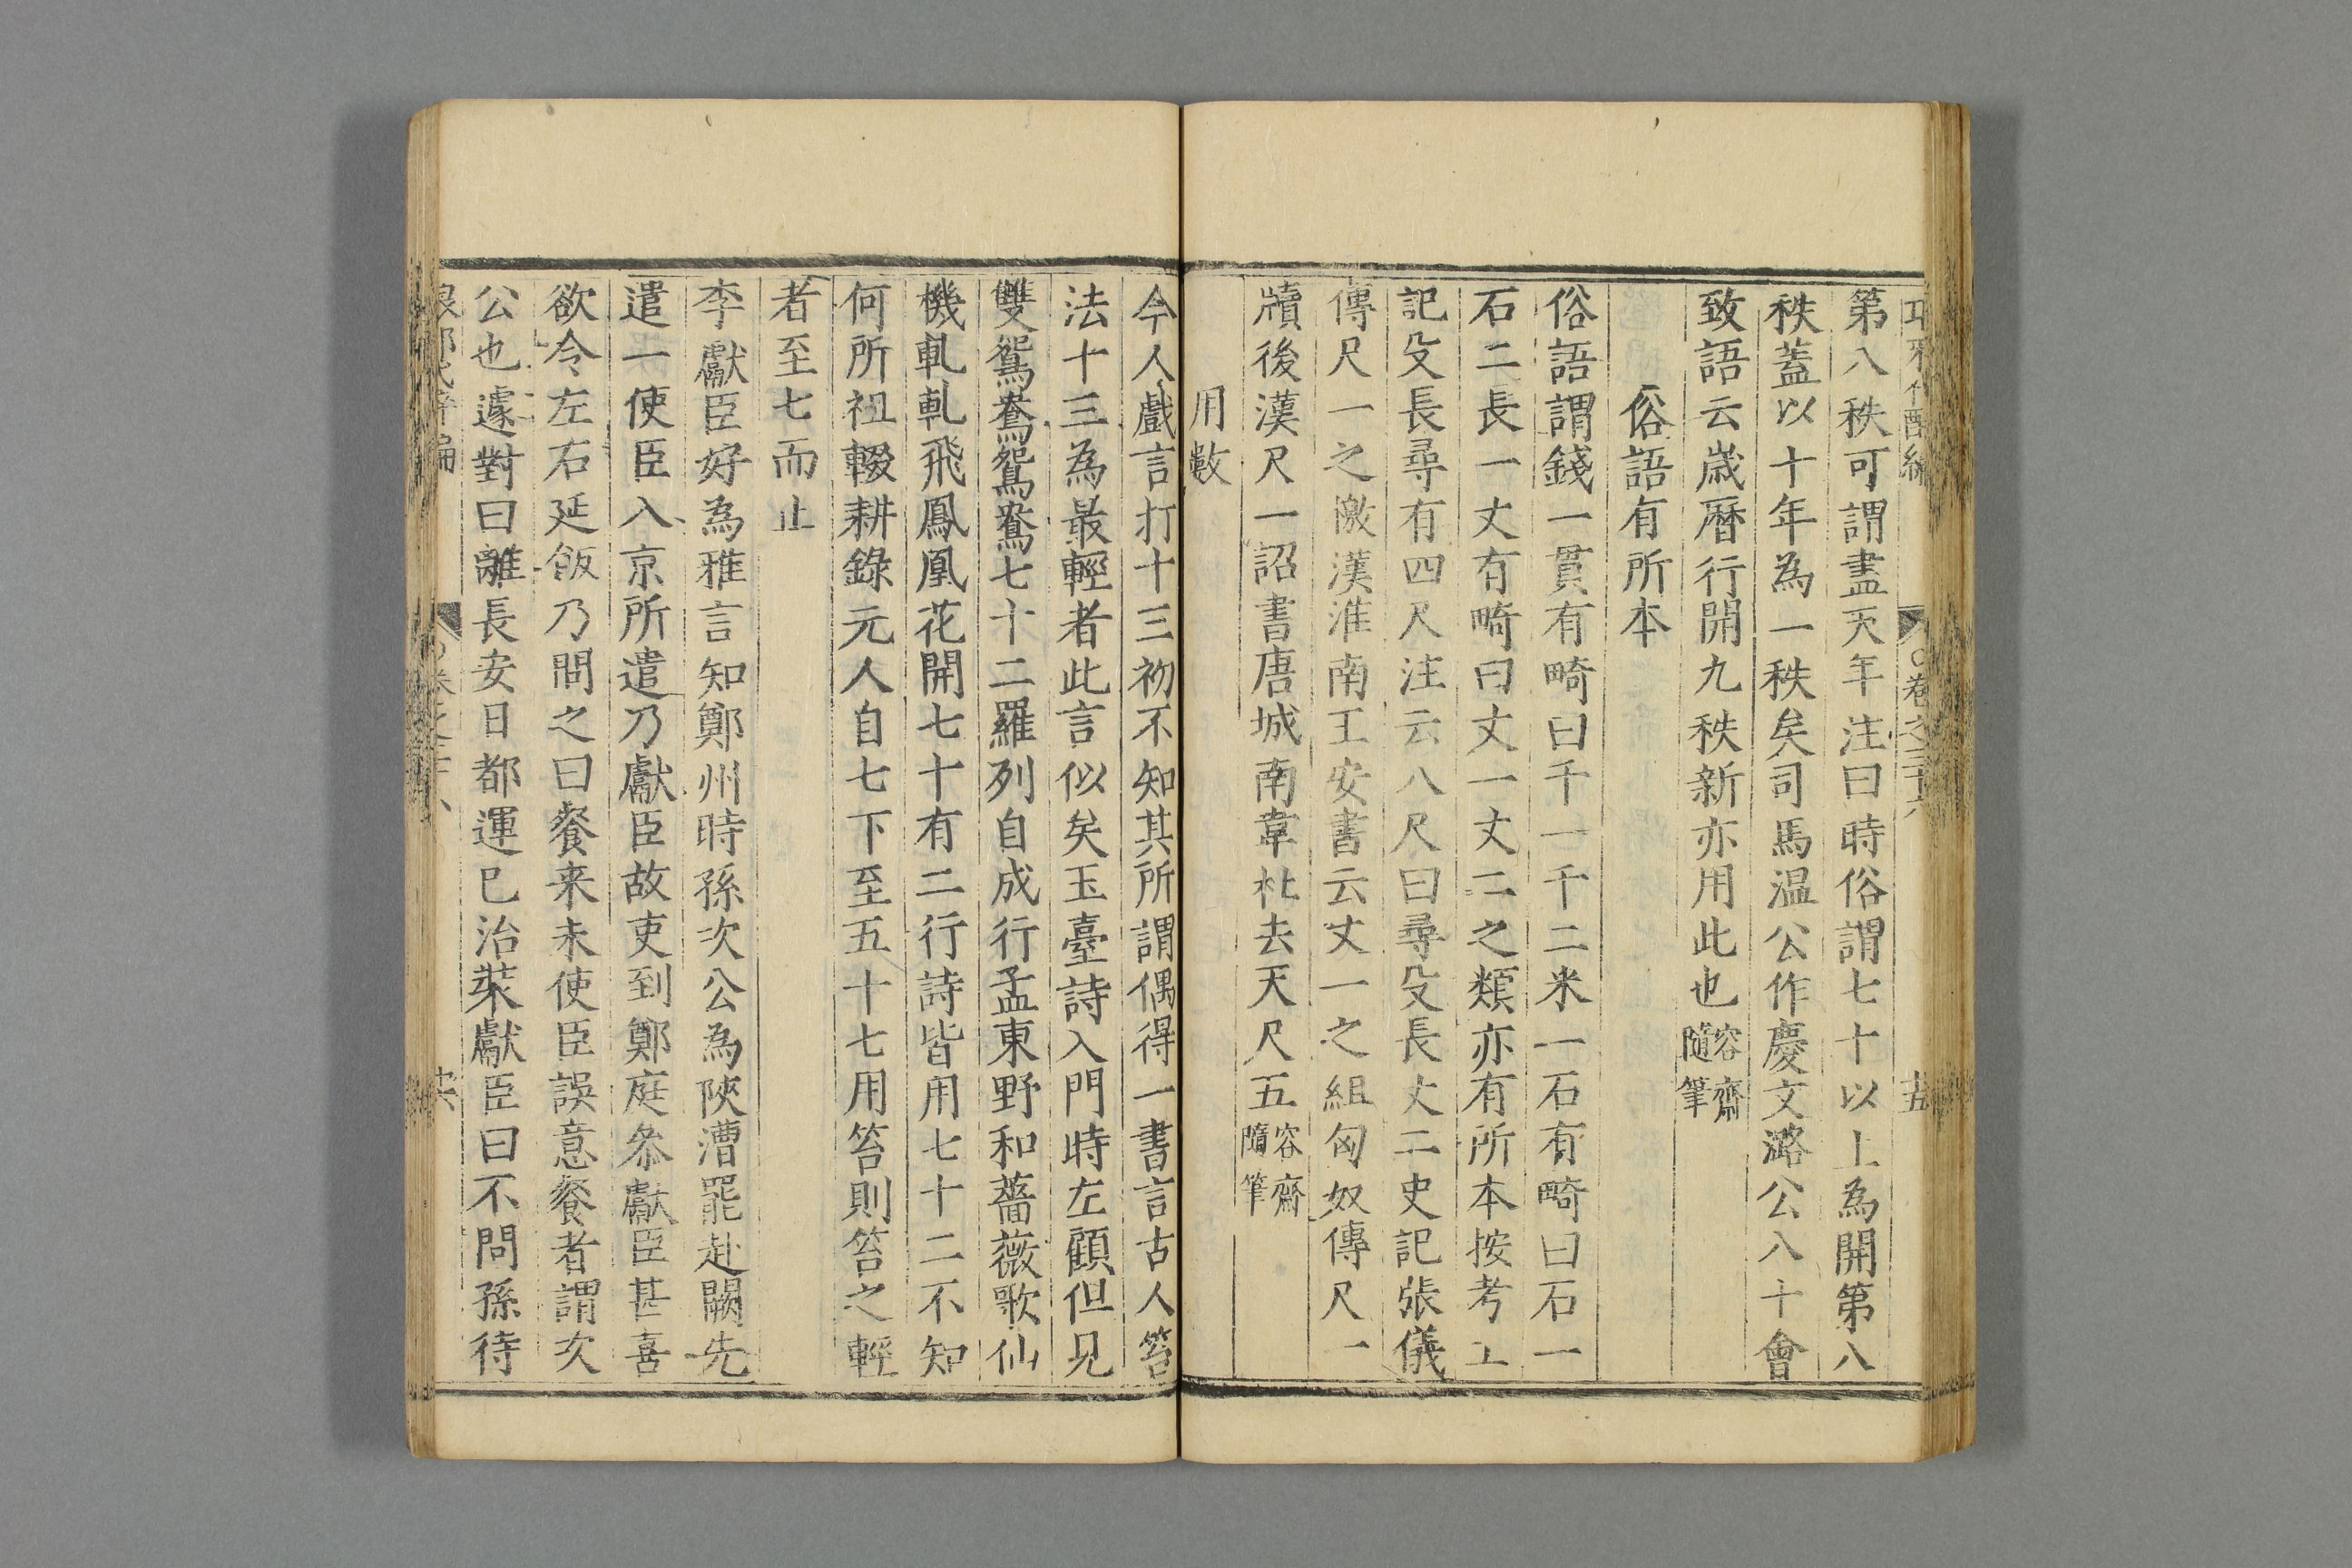 第八秩可謂盡天年注曰時俗謂七十以上為開第八
秩蓋以十年為一秩矣司馬溫公作慶文潞公八十會
致語云歲曆行開九秩新亦用此也容齋隨筆
俗語有所本
俗語謂錢一貫有畸曰千一千二米一石有畸曰石一
石二長一丈有畸曰丈一丈二之類亦有所本按考工
記殳長尋有四尺注云八尺曰尋殳長丈二史記張儀
傳尺一之檄漢淮南王安書云丈一之組匈奴傳尺一
牘後漢尺一詔書唐城南韋杜去天尺五容齋隨筆
用數
今人戲言打十三初不知其所謂偶得一書言古人笞
法十三為最輕者此言似矣玉臺詩入門時左顧但見
雙鴛鴦鴛鴦七十二羅列自成行孟東野和薔薇歌仙
機軋軋飛鳳凰花開七十有二行詩皆用七十二不知
何所祖輟耕錄元人自七下至五十七用笞則笞之輕
者至七而止
李獻臣好為雅言知鄭州時孫次公為陝漕罷赴闕先
遣一使臣入京所遣乃獻臣故吏到鄭庭叅獻臣甚喜
欲令左右延飯乃問之曰餐来未使臣誤意餐者謂次
公也遽對曰離長安日都運已治裝獻臣曰不問孫待